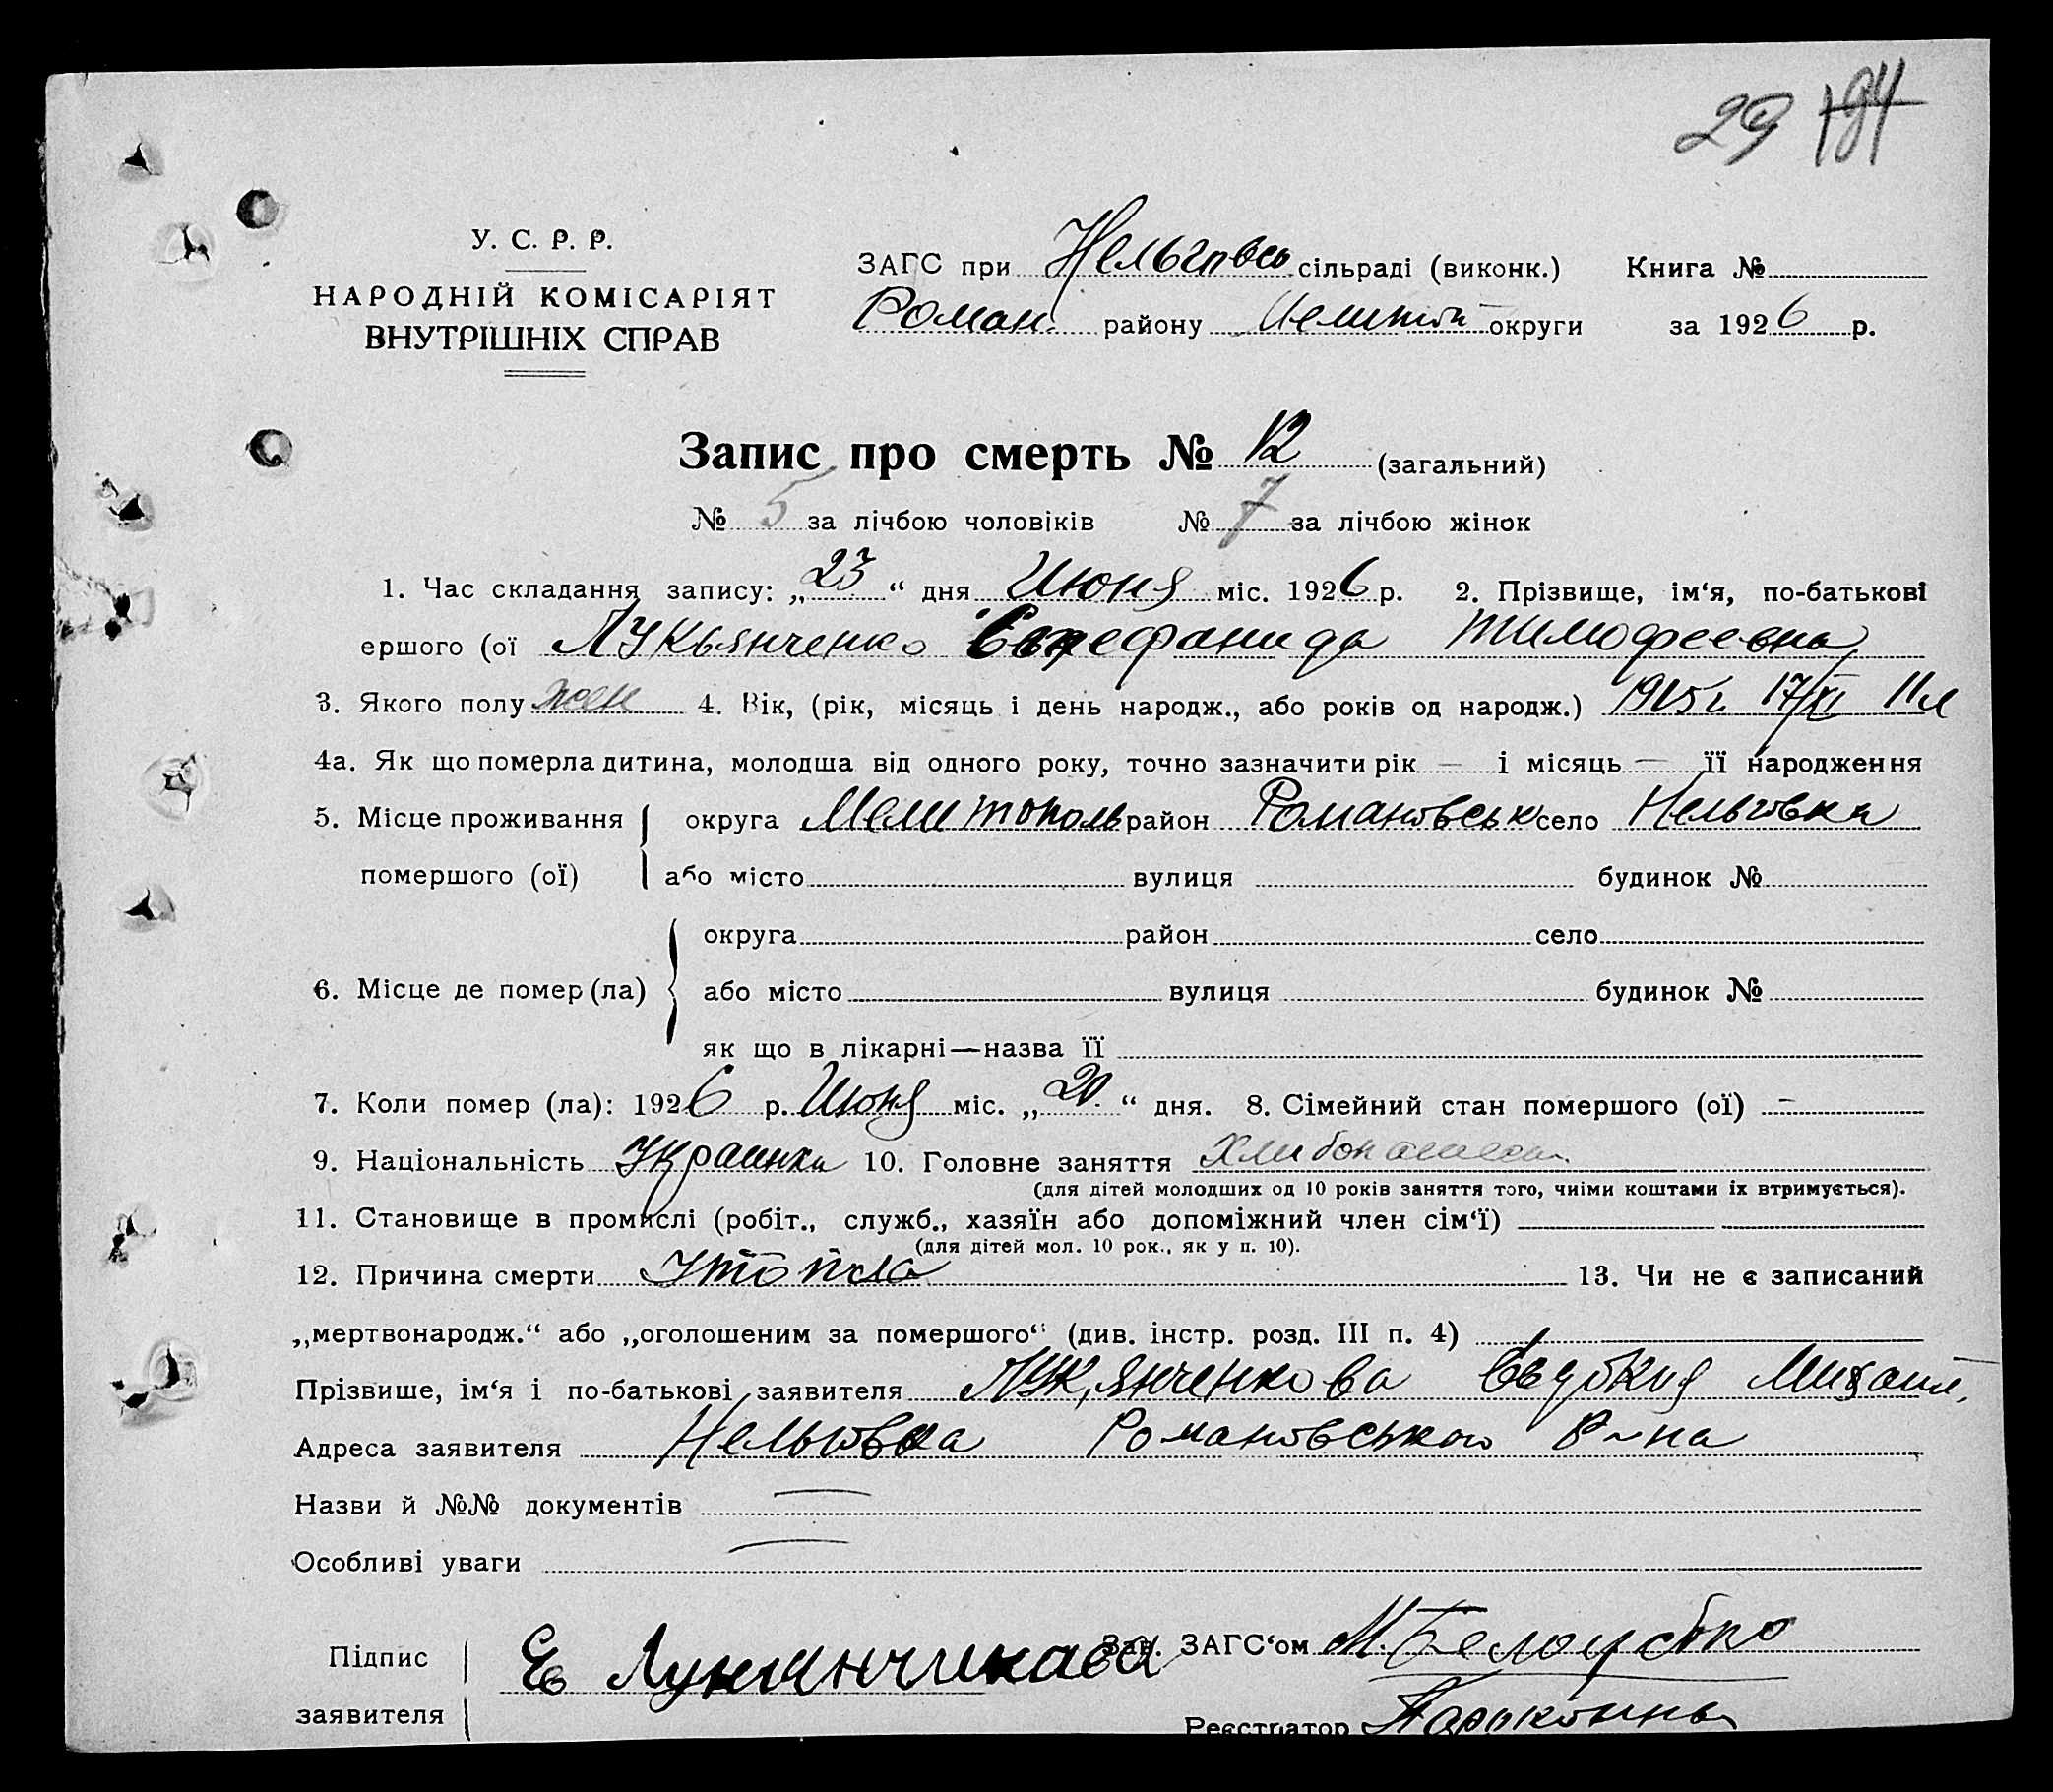 29 194
У. С. Р. Р.
НАРОДНІЙ КОМІСАРІЯТ
ВНУТРІШНІХ СПРАВ
ЗАГС при Нельговсь сільраді (виконк.) Книга №
Роман. району округи за 1926 р.
Запис про смерть № 12 (загальний)
№ 5 за лічбою чоловіків № 7 за лічбою жінок
1. Час складання запису: „23“ дня Июня міс. 1926 р. 2. Прізвище, ім‘я, по-батькові
ершого (ої Лукьянченко Тимофеевна
3. Якого полу жен 4. Вік, (рік, місяць і день народж., або років од народж.) 1915 г. 17/XI 11 л
4а. Як що померла дитина, молодша від одного року, точно зазначити рік — і місяць — її народження
5. Місце проживання округа Мелитополь район Романовськ село Нельговка
померш​ого (ої) або місто вулиця будинок №
округа район село
6. Місце де помер (ла) або місто вулиця будинок №
як що в лікарні—назва її
7. Коли помер (ла): 1926 р. Июня міс. „20“ дня. 8. Сімейний стан помершого (ої) —
9. Національність Украинка 10. Головне заняття
(для дітей молодших од 10 років заняття того, чиіми коштами їх втримується).
11. Становище в промислі (робіт., служб., хазяїн або допоміжний член сім‘ї)
(для дітей мол. 10 рок., як у п. 10).
12. Причина смерти Утопла 13. Чи не є записаний
„мертвонародж.“ або „оголошеним за помершого“ (див. інстр. розд. III п. 4)
Прізвише, ім‘я і по-батькові заявителя Лукянченкова Евдокия Михаил.
Адреса заявителя Нельговка Романовського Р-на
Назви й №№ документів —
Особливі уваги —
Підпис Ев Зав. ЗАГС‘ом М. Белоусько
заявителя
Реєстратор